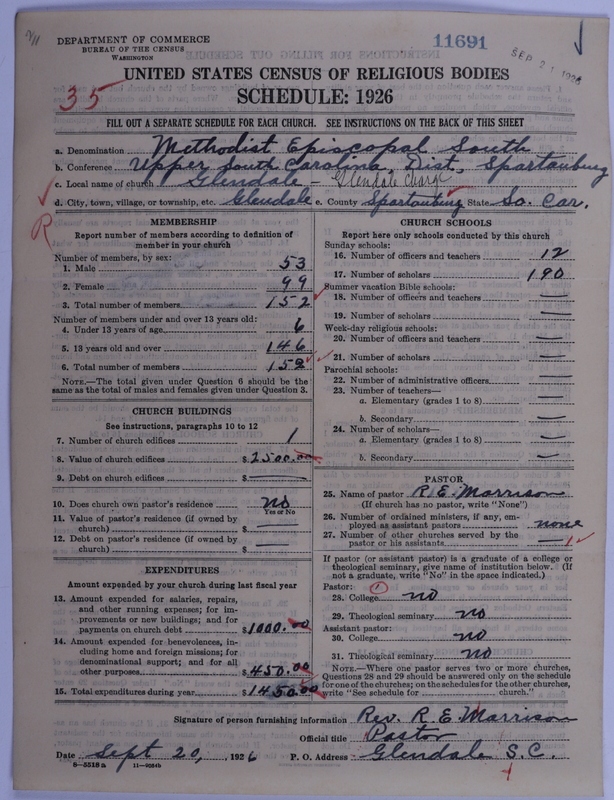 DEPARTMENT OF COMMERCE
BUREAU OF THE CENSUS
WASHINGTON
11691
SEP 21 1926
35
UNITED STATES CENSUS OF RELIGIOUS BODIES
SCHEDULE: 1926
FILL OUT A SEPARATE SCHEDULE FOR EACH CHURCH. SEE INSTRUCTIONS ON THE BACK OF THIS SHEET
a. Denomination Methodist Episcopal South
b. Conference Upper South Carolina, Dist, Spartanburg
c. Local name of church Glendale - Glendale Charge
d. City, town, village, or township, etc. Glendale e. County Spartanburg State So. Car.
R
MEMBERSHIP
Report number of members according to definition of member in your church
Number of members, by sex:
1. Male 53
2. Female 99
3. Total number of members 152
Number of members under and over 13 years old:
4. Under 13 years of age 6
5. 13 years old and over 146
6. Total number of members 152
NOTE.—The total given under Question 6 should be the same as the total of males and females given under Question 3.
CHURCH BUILDINGS
See instructions, paragraphs 10 to 12
7. Number of church edifices 1
8. Value of church edifices $2500.00
9. Debt on church edifices $ —
10. Does church own pastor's residence no
Yes or No
11. Value of pastor's residence (if owned by
church) $ —
12. Debt on pastor's residence (if owned by
church) $ —
EXPENDITURES
Amount expended by your church during last fiscal year
13. Amount expended for salaries, repairs,
and other running expenses; for im-
provements or new buildings; and for
payments on church debt $1000.00
14. Amount expended for benevolences, in-
cluding home and foreign missions; for
denominational support; and for all
other purposes $450.00
15. Total expenditures during year $1450.00
CHURCH SCHOOLS
Report here only schools conducted by this church
Sunday schools:
16. Number of officers and teachers 12
17. Number of scholars 190
Summer vacation Bible schools:
18. Number of officers and teachers —
19. Number of scholars —
Week-day religious schools:
20. Number of officers and teachers —
21. Number of scholars —
Parochial schools:
22. Number of administrative officers —
23. Number of teachers—
a. Elementary (grades 1 to 8) —
b. Secondary —
24. Number of scholars—
a. Elementary (grades 1 to 8) —
b. Secondary —
PASTOR
25. Name of pastor R. E. Marrison
(If church has no pastor, write "None")
26. Number of ordained ministers, if any, em-
ployed as assistant pastors none
27. Number of other churches served by the
pastor or his assistants — 1
If pastor (or assistant pastor) is a graduate of a college or
theological seminary, give name of institution below. (If
not a graduate, write "No" in the space indicated.)
Pastor: 1
28. College no
29. Theological seminary no
Assistant pastor:
30. College no
31. Theological seminary no
NOTE.—Where one pastor serves two or more churches,
Questions 28 and 29 should be answered only on the schedule
for one of the churches; on the schedules for the other churches,
write "See schedule for ........ church."
Signature of person furnishing information Rev. R. E. Marrison
Official title Pastor
Date Sept 20, 1926 P. O. Address Glendale S.C.
8—5518 a 11—9084b